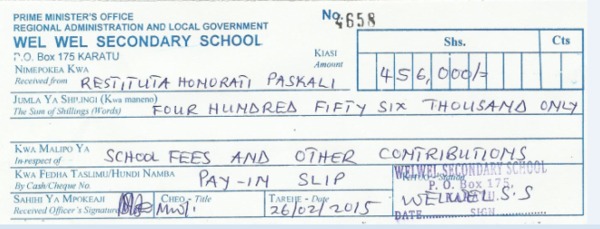 PRIME MINISTER'S OFFICE
REGIONAL ADMINISTRATION AND LOCAL GOVERNMENT
WEL WEL SECONDARY SCHOOL
P.O. Box 175 KARATU
No. 4658
NIMEPOKEA KWA
Received from RESTITUTA HONORATI PASKALI
KIASI
Amount
Shs. Cts
456,000/=
JUMLA YA SHILINGI (KWA MANENO)
The Sum of Shillings (Words) FOUR HUNDRED FIFTY SIX THOUSAND ONLY
KWA MALIPO YA
In respect of SCHOOL FEES AND OTHER CONTRIBUTIONS
KWA FEDHA TASLIMU/HUNDI NAMBA
By Cash/Cheque No. PAY-IN SLIP
WELWEL SECONDARY SCHOOL
P. O. Box 175,
WELWEL S.S
DATE SIGN
SAHIHI YA MPOKEAJI
Received Officer's Signature
CHEO - Title
TAREHE - Date
26/02/2015